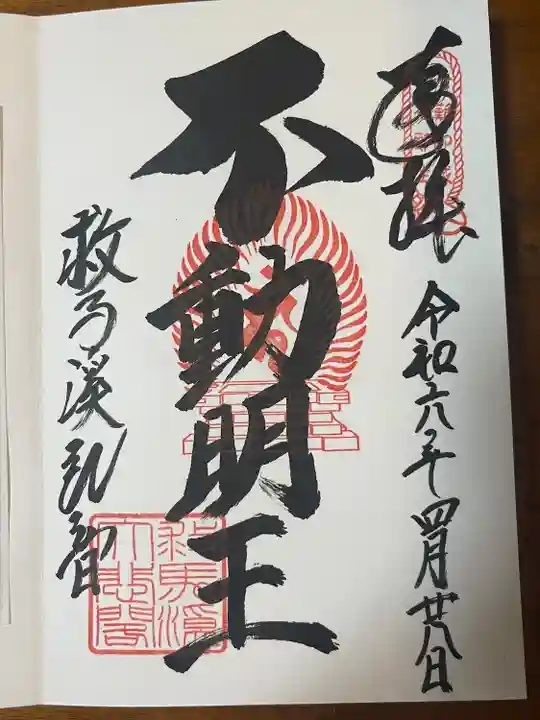 奉拝
令和六年四月廿八日
不動明王
救馬溪観音